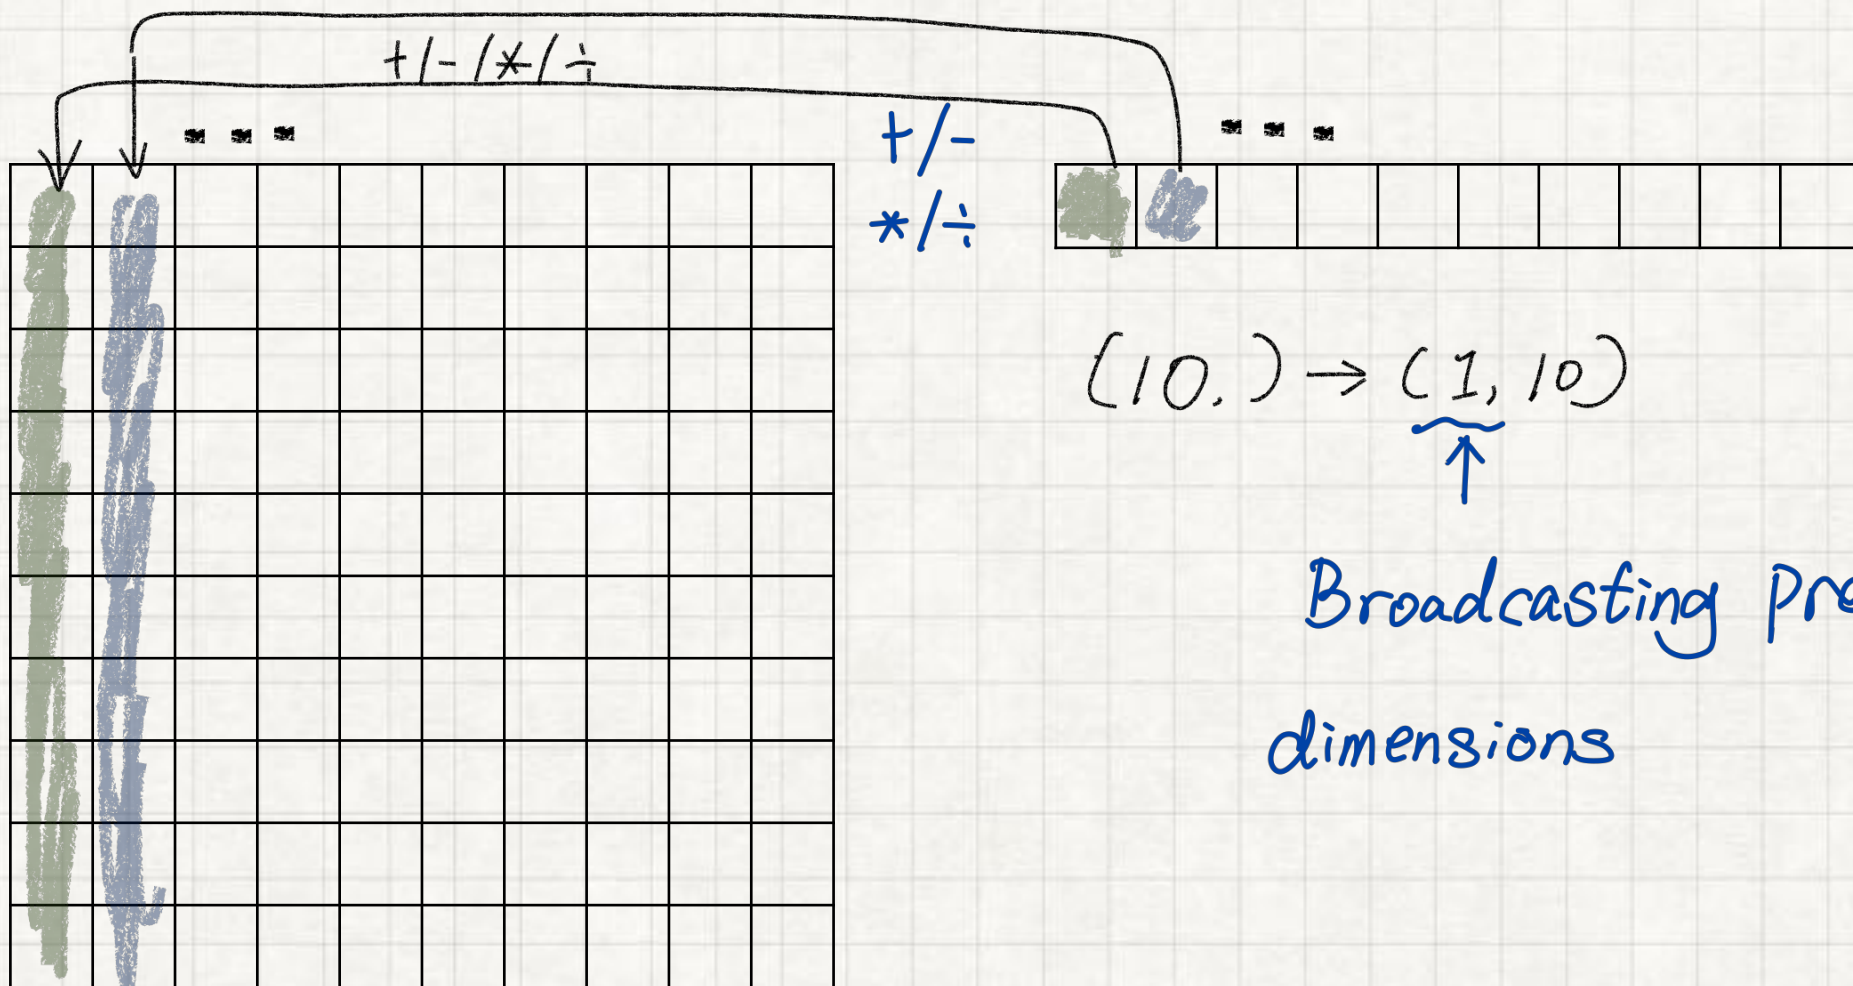 +/-/*/÷
+/-
*/÷
(10,) → (1, 10)
Broadcasting
dimensions